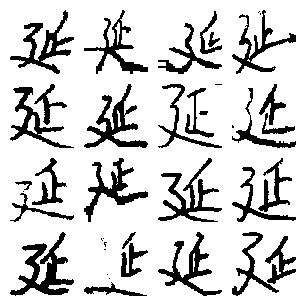 延延延延
延延延延
延延延延
延延延延